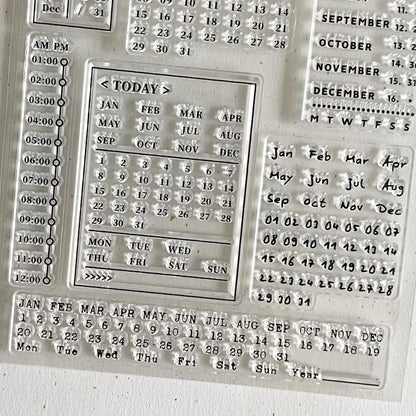 Dec / 31
14
15 16 17 18 19 20 21
22 23 24 25 26 27 28
29 30 31
SEPTEMBER 12.
OCTOBER 13.
NOVEMBER 14.
DECEMBER 16.
M T W T F S S
AM PM
01:00
02:00
03:00
04:00
05:00
06:00
07:00
08:00
09:00
10:00
11:00
12:00
< TODAY >
JAN FEB MAR APR
MAY JUN JUL AUG
SEP OCT NOV DEC
1 2 3 4 5 6 7
8 9 10 11 12 13 14
15 16 17 18 19 20 21
22 23 24 25 26 27 28
29 30 31
MON TUE WED
THU FRI SAT SUN
>>>>>
Jan Feb Mar Apr
May Jun Jul Aug
Sep Oct Nov Dec
01 02 03 04 05 06 07
08 09 10 11 12 13 14
15 16 17 18 19 20 21
22 23 24 25 26 27 28
29 30 31
JAN FEB MAR APR MAY JUN JUL AUG SEP OCT NOV DEC
1 2 3 4 5 6 7 8 9 10 11 12 13 14 15 16 17 18 19
20 21 22 23 24 25 26 27 28 29 30 31
Mon Tue Wed Thu Fri Sat Sun Year